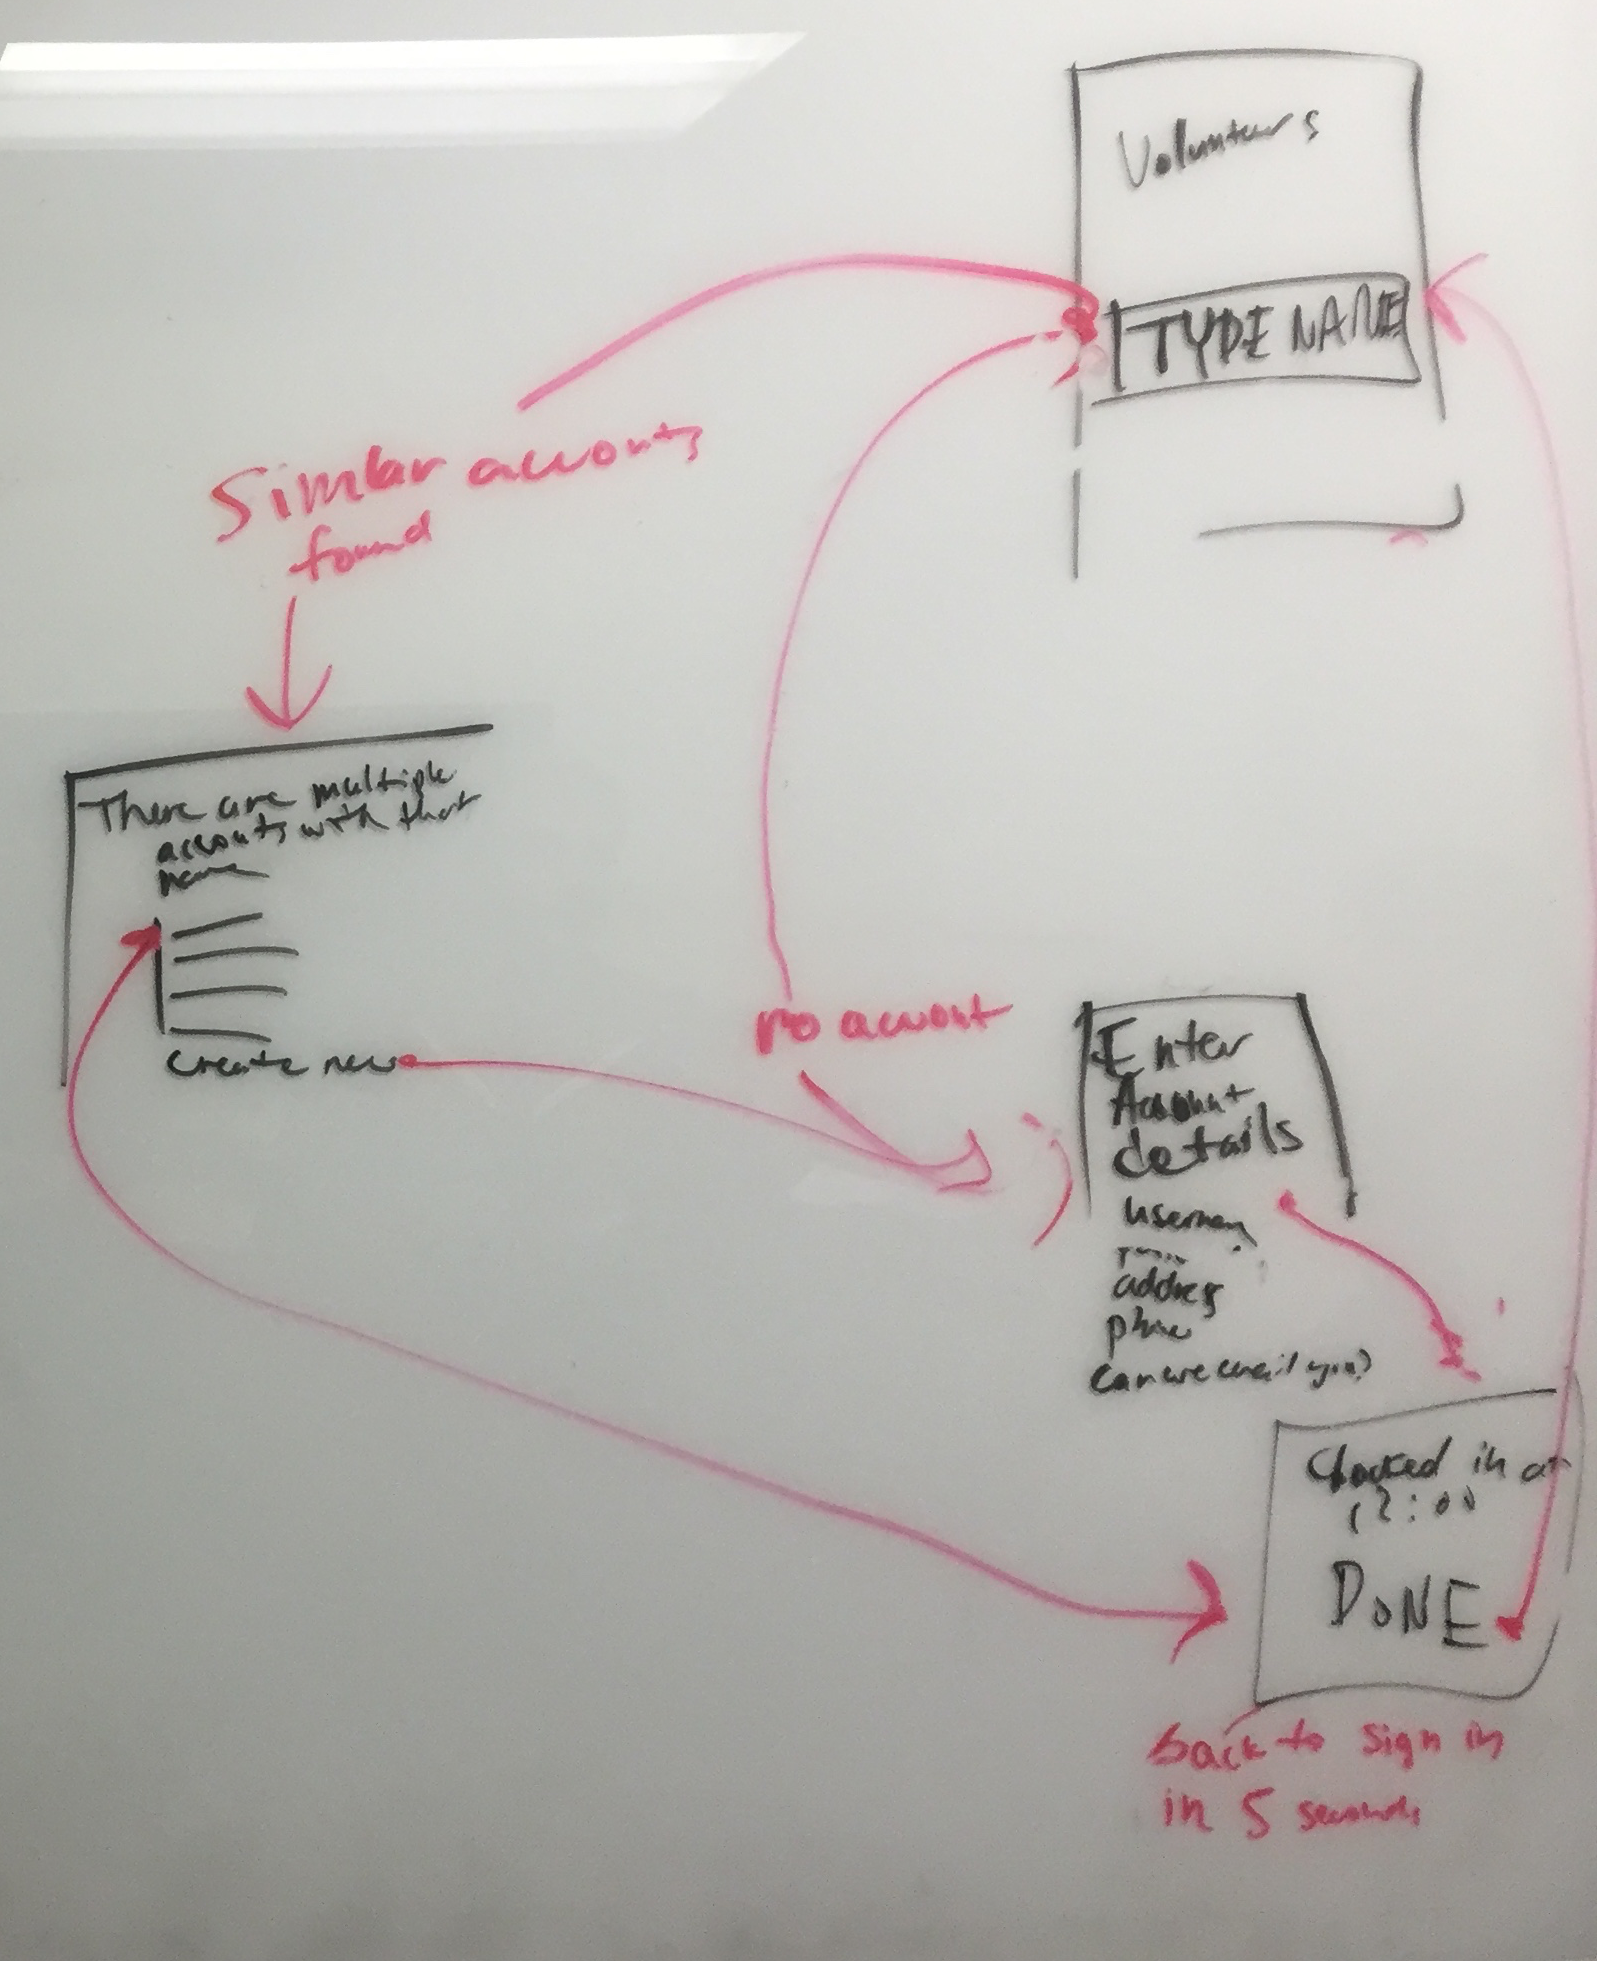 Volunteers
TYPE NAME
Similar accounts
found
There are multiple
accouts with that
name
Create new
no account
Enter
Account
details
address
phone
can we email you?
Clocked in at
12:00
DONE
back to sign in
in 5 seconds